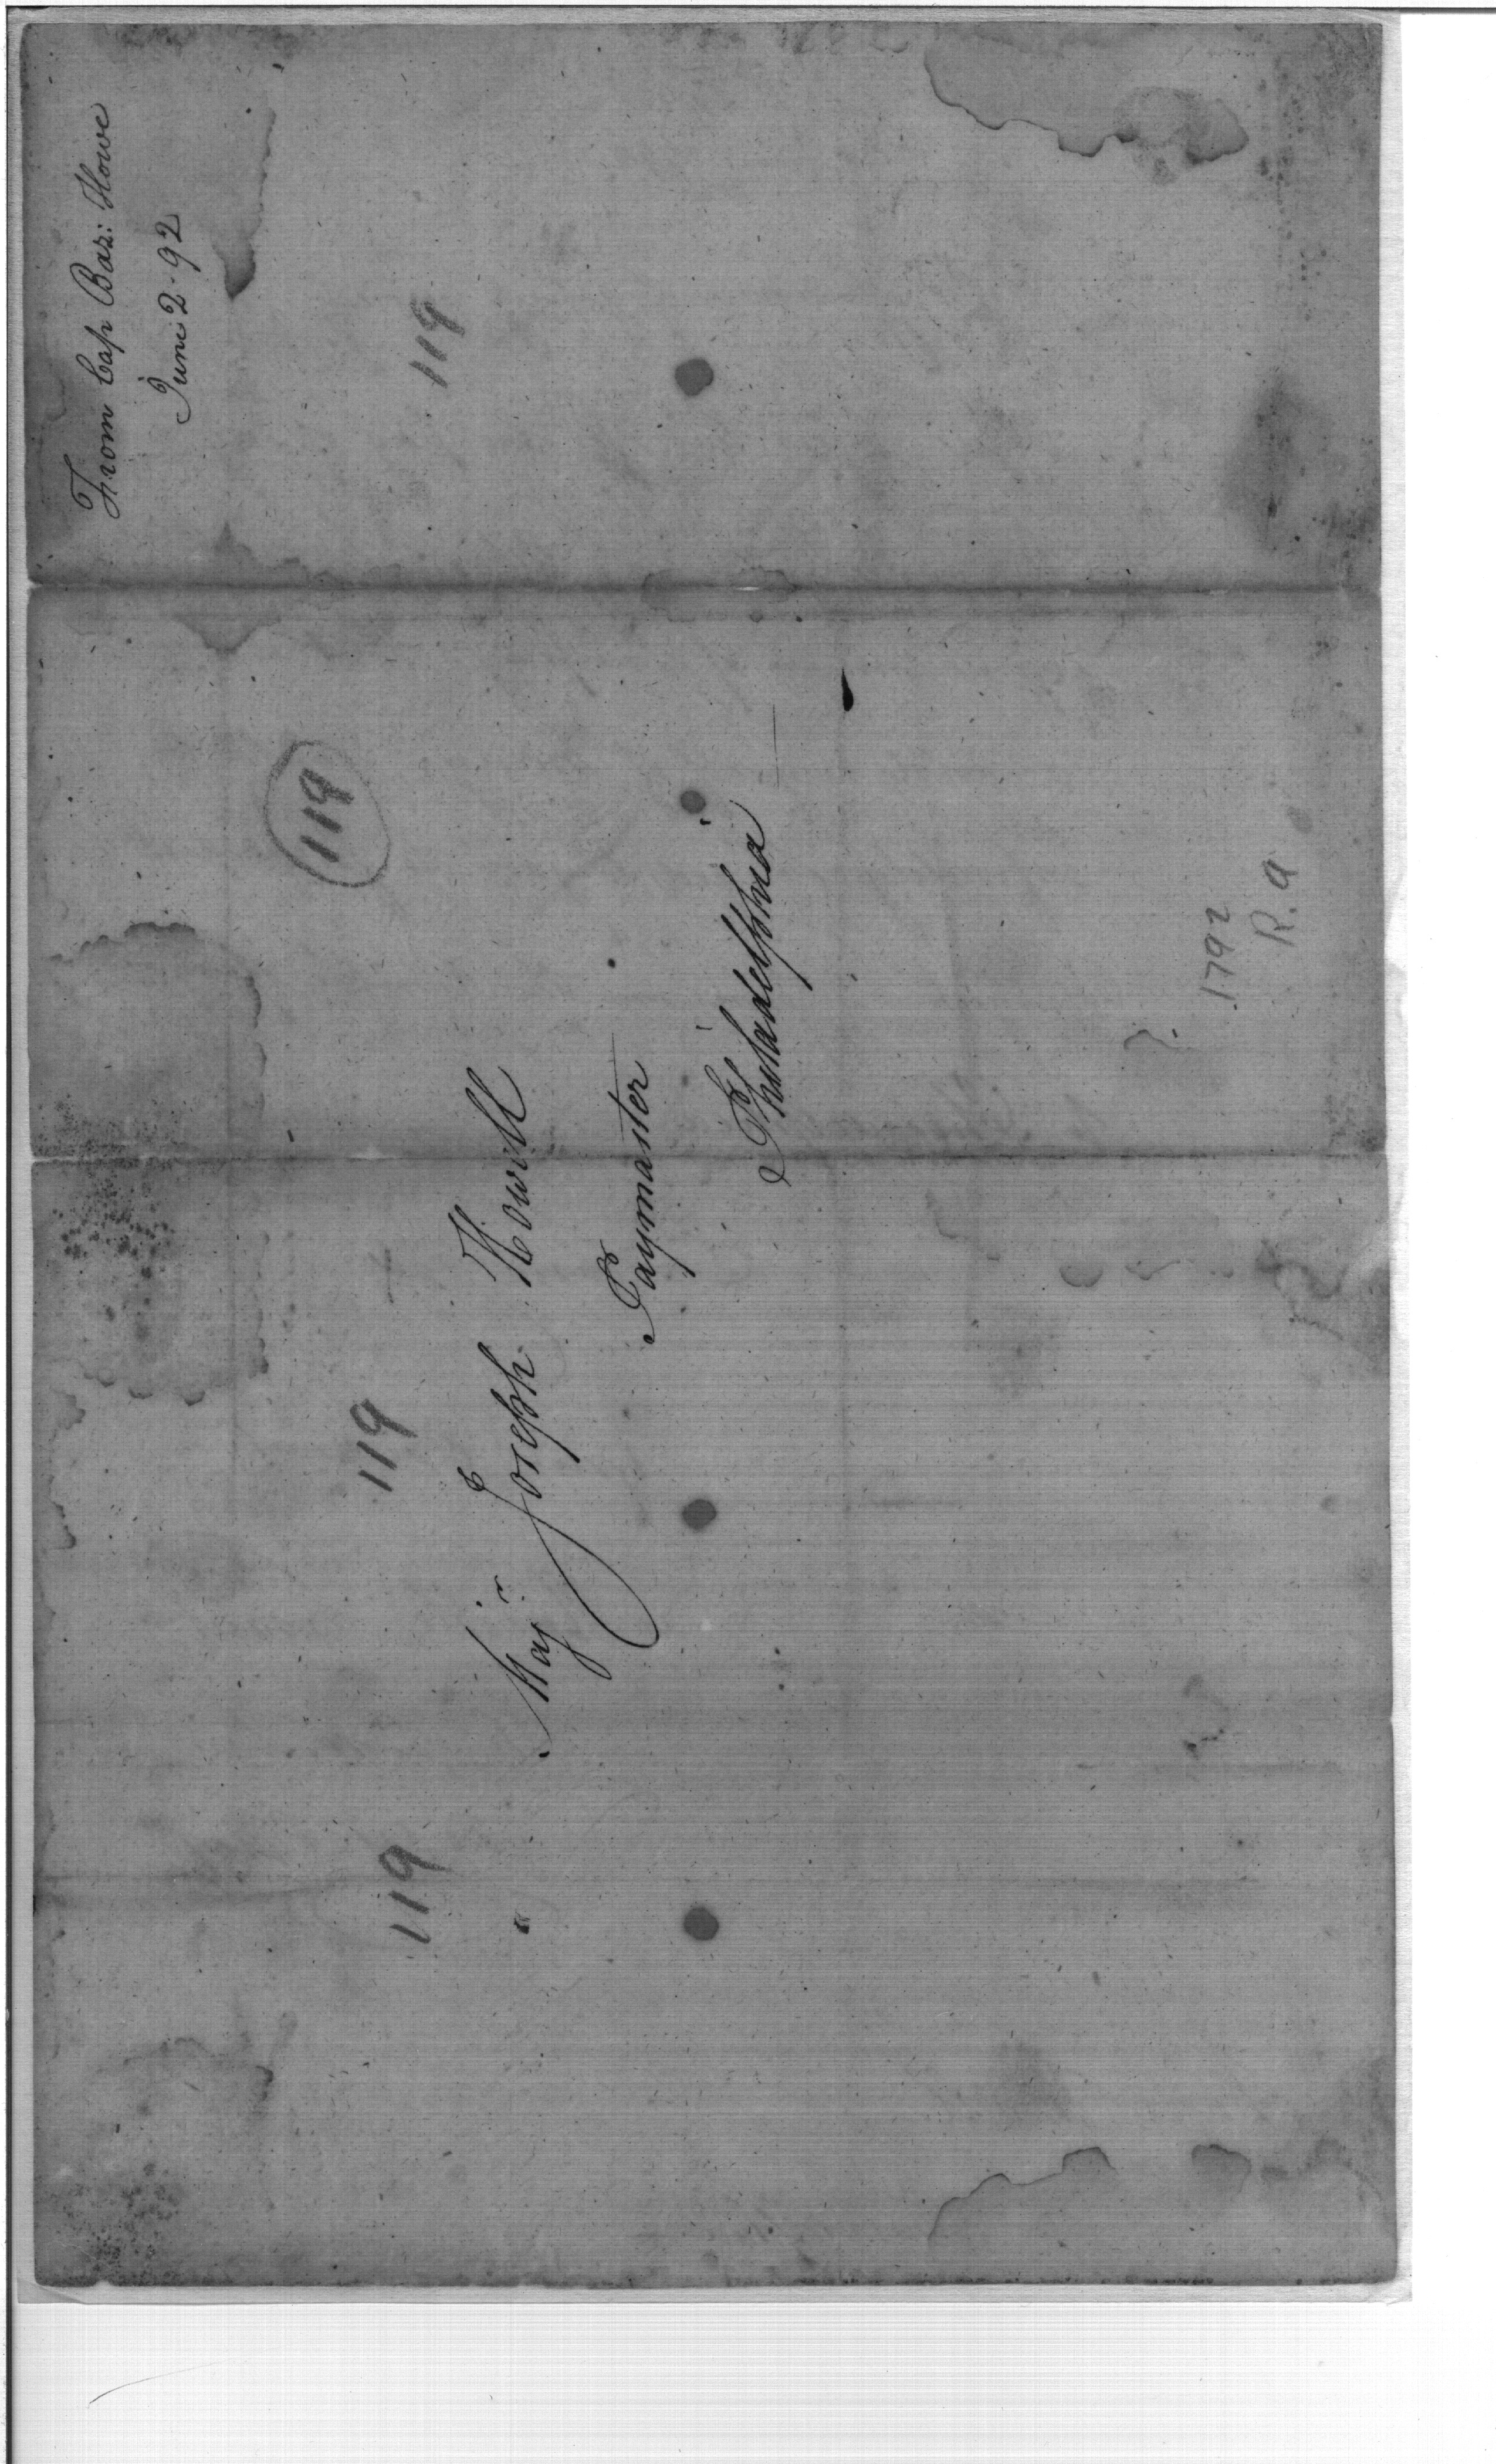 From Cap Baz: Howe
June 2 - 92
119
119
119
119
Maj.r Joseph Howell
Paymaster
Philadelphia
1792
R. a